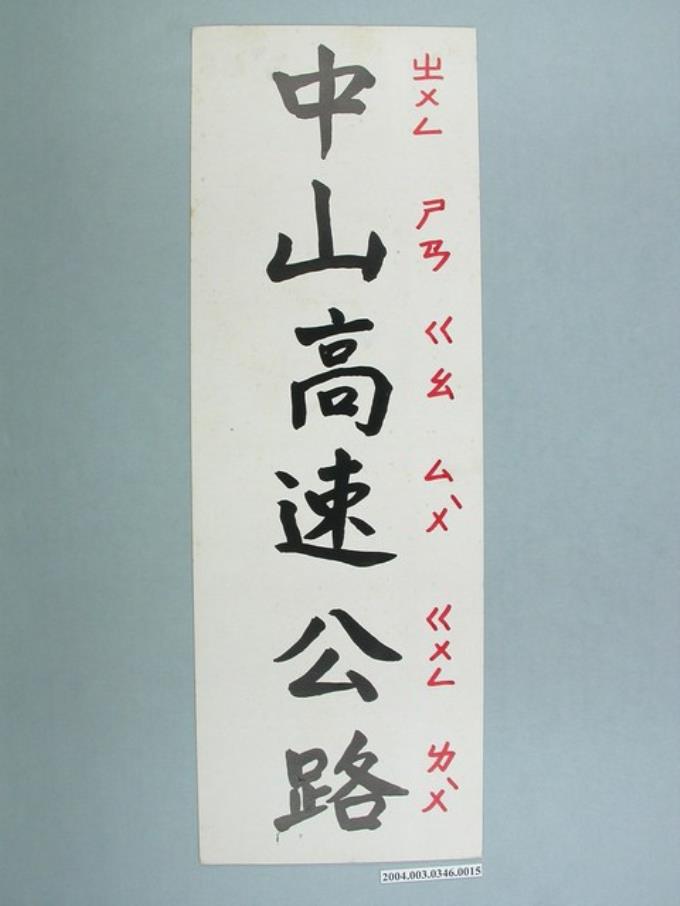 中山高速公路
ㄓㄨㄥ ㄕㄢ ㄍㄠ ㄙㄨˋ ㄍㄨㄥ ㄌㄨˋ
2004.003.0346.0015